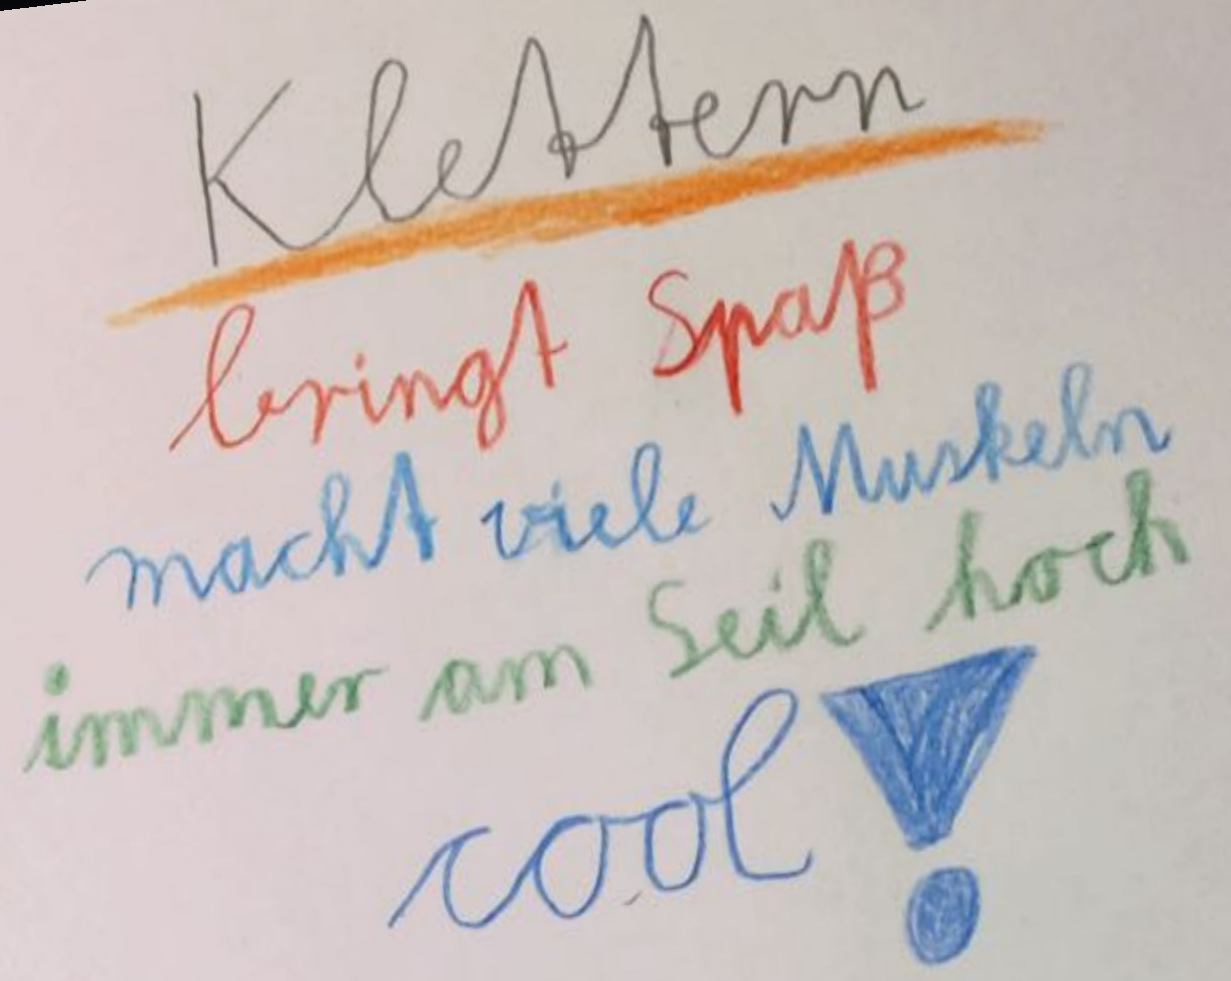 Klettern
bringt Spaß
macht viele Muskeln
immer am Seil hoch
cool!